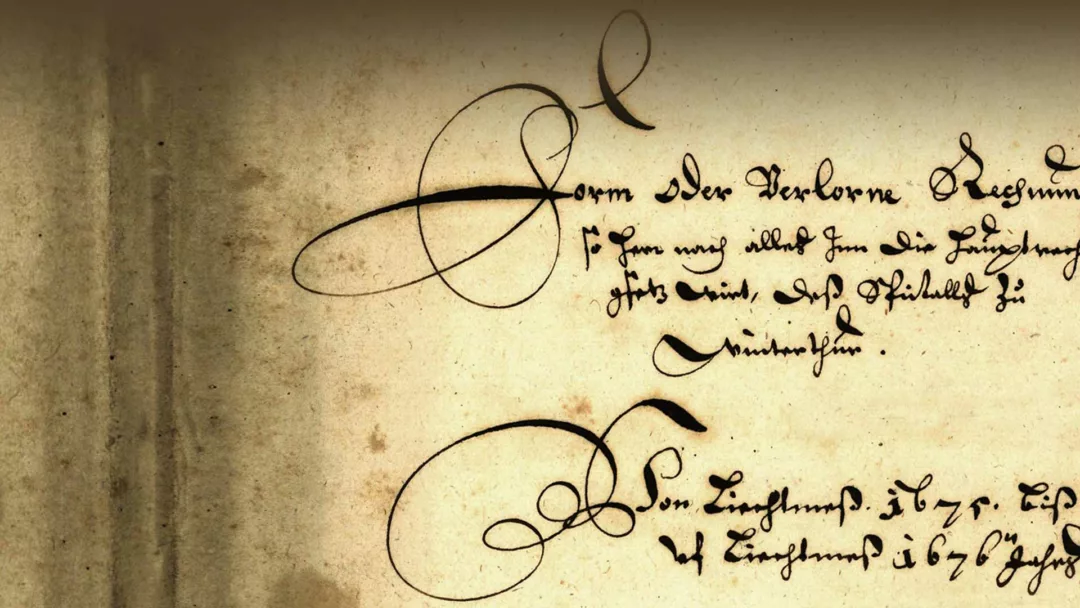 Form oder Verlorne Rechnun
so hern nach alles Inn die Hauptrech
gsetz wirt, deß Spitalls zu
Winterthur.
Von Liechtmeß. 1675. biß
uf Liechtmeß 1676 Jahrs